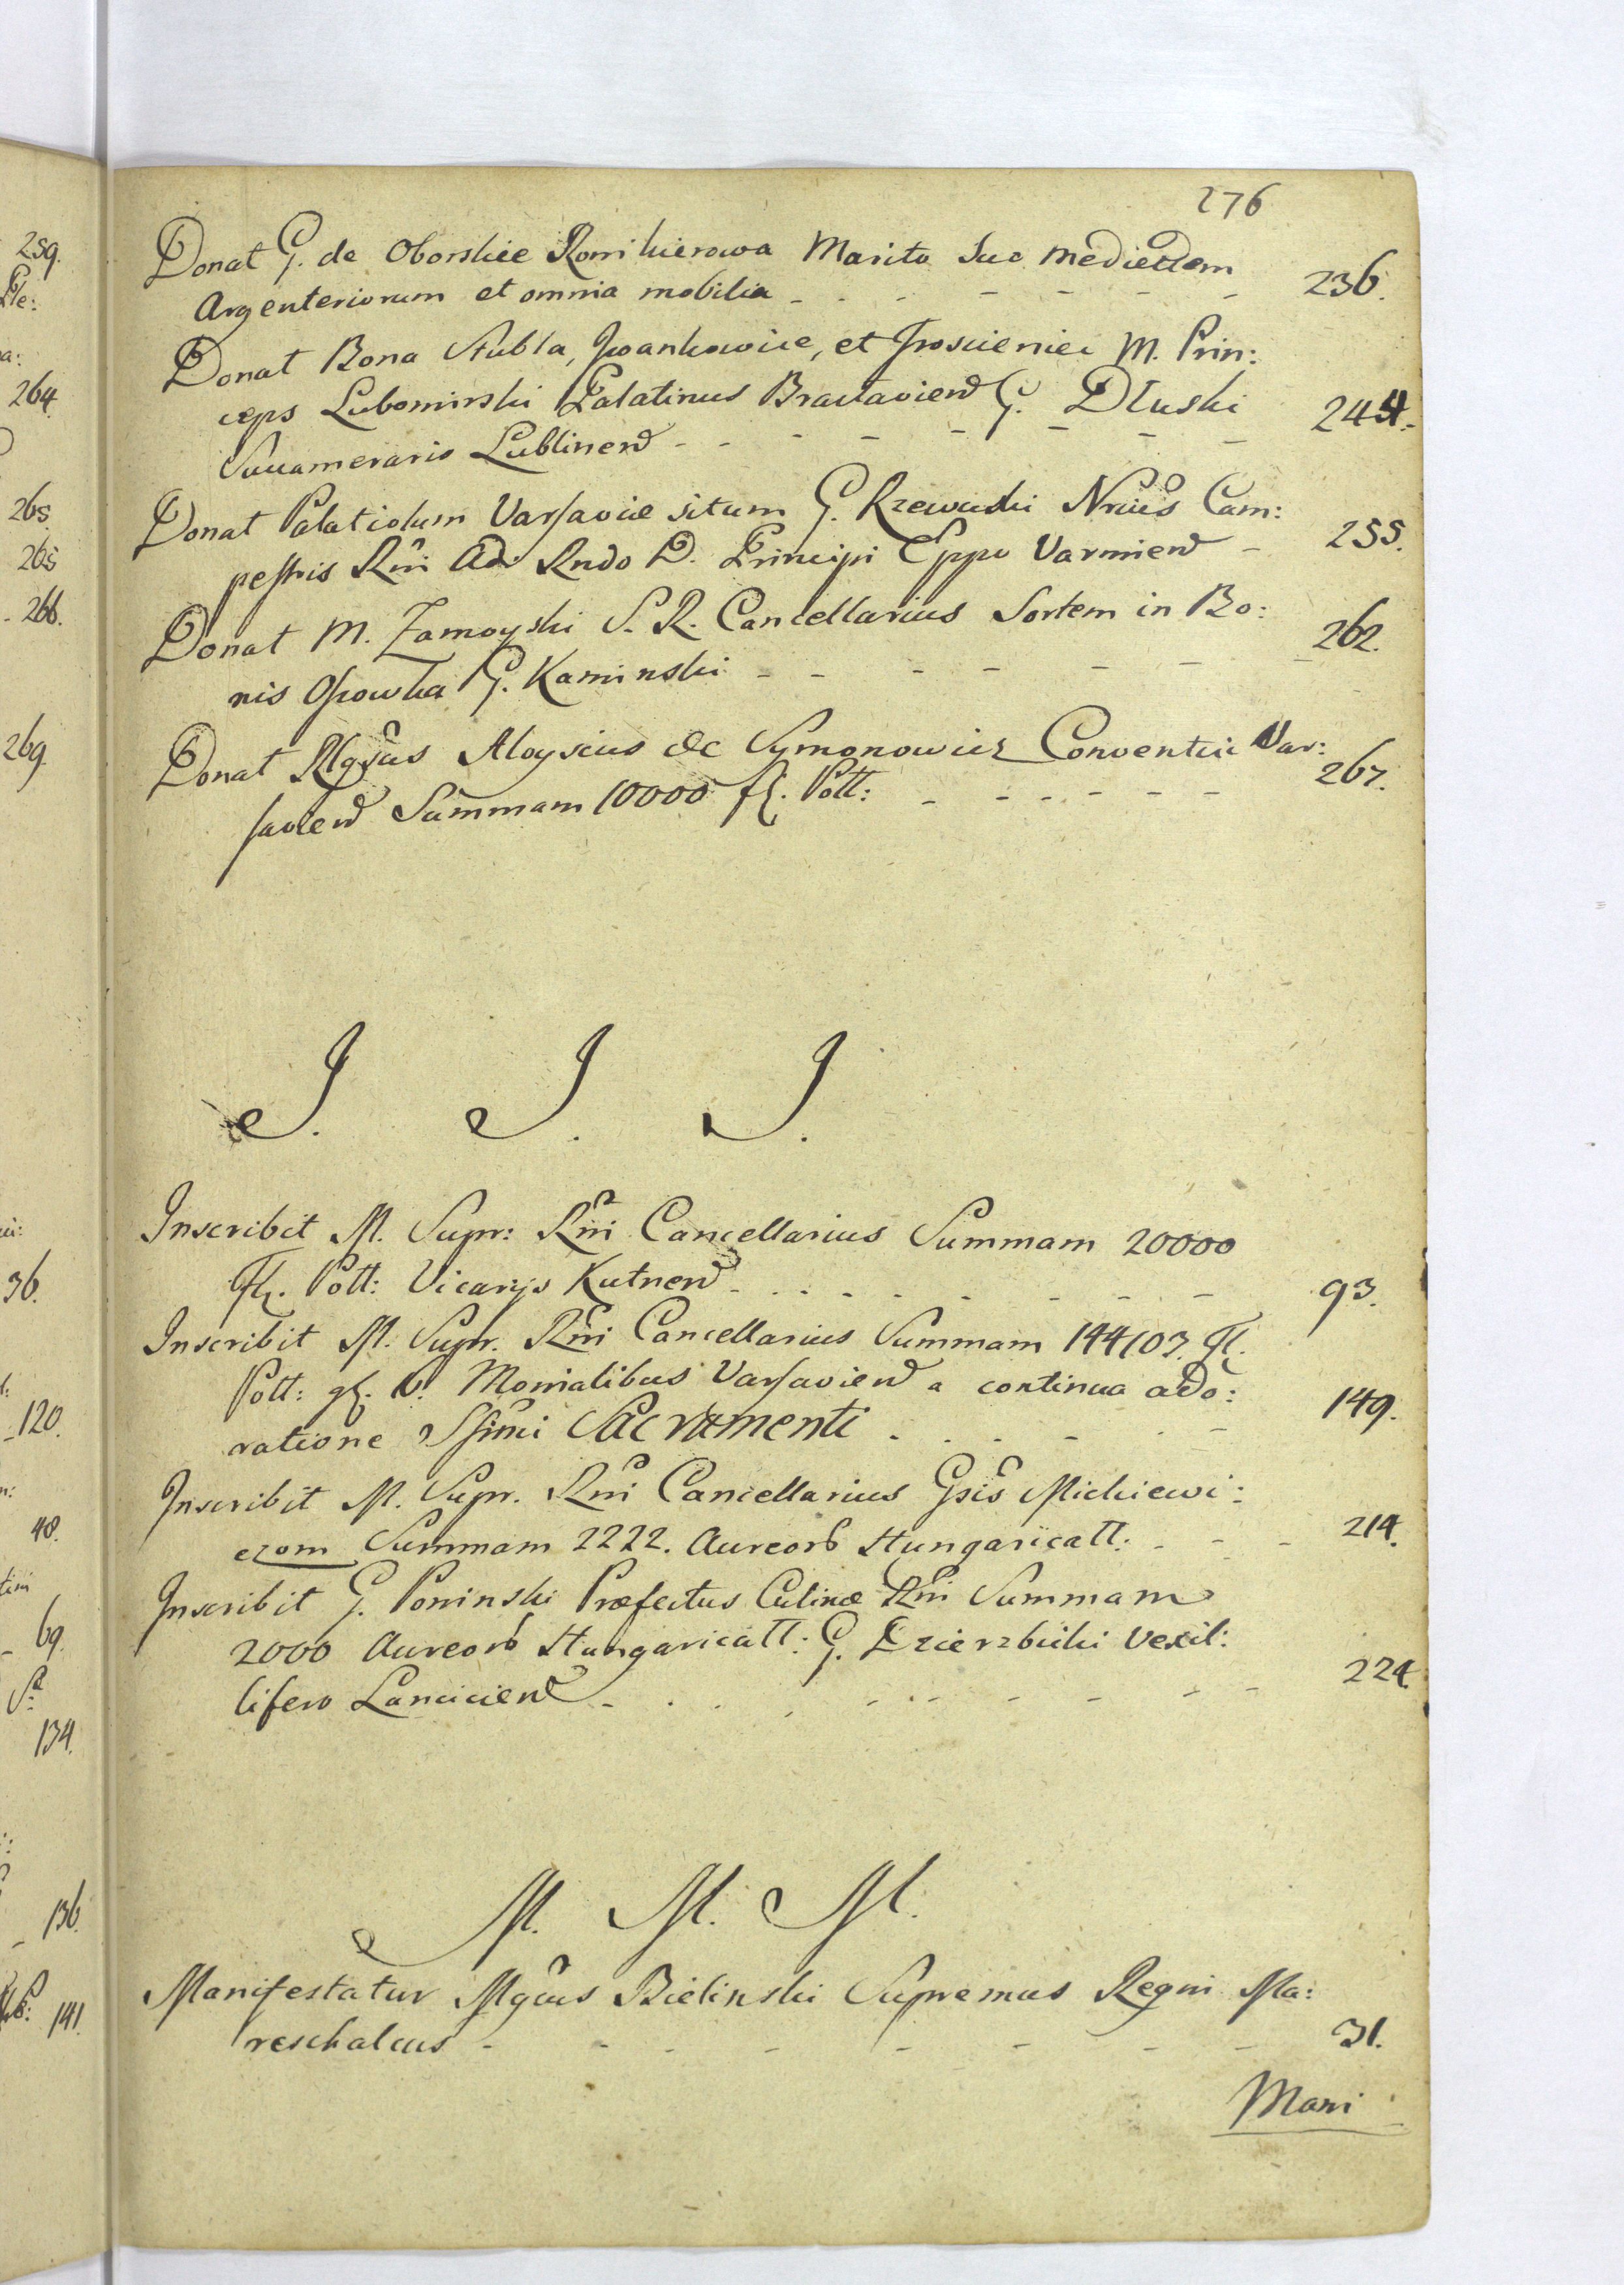 276
Donat G. de Oborskie Romikierowa Marito Suo Medietatem
Argenteriorum et omnia mobilia - - - - - - - 236.
Donat Bona Stubla, Iwankowice, et Troscieniec M. Prin:
ceps Lubomirski Palatinus Braclavien G. Dluski
Succamerario Lublinen - - - - - - - 244.
Donat Palatiolum Varsaviæ situm G. Rzewuski Nrius Cam:
pestris Rni Adr Rndo D. Principi Eppo Varmien - 255.
Donat M. Zamoyski S. R. Cancellarius Sortem in Bo:
nis Opowka G. Kaminski - - - - - - - 262.
Donat Rlgsus Aloysius de Symonowicz Conventui Var:
savien Summam 10000 fl. Poll: - - - - - - 267.
J. J. J.
Inscribit M. Supr: Rni Cancellarius Summam 20000
Fl. Poll: Vicarijs Kutnen - - - - - - - - 93.
Inscribit M. Supr. Rni Cancellarius Summam 144103. Fl.
Poll: gl. V. Monialibus Varsavien a continua ado:
ratione Ssimi Sacramenti - - - - - - 149.
Inscribit M. Supr. Rni Cancellarius Gsis Mickiewi:
czom Summam 2222. Aureorb Hungaricall: - - - 214.
Inscribit G. Poninski Præfectus Culinæ Rni Summam
2000 Aureorb Hungaricall: G. Dzierzbicki Vexil:
lifero Lancicien - - - - - - - - - 224.
M. M. M.
Manifestatur Mgcus Bielinski Supremus Regni Ma:
reschalcus - - - - - - - - 31.
Mani
259.
264.
265.
265
- 266.
269.
36.
120.
48.
69.
134.
136.
141.